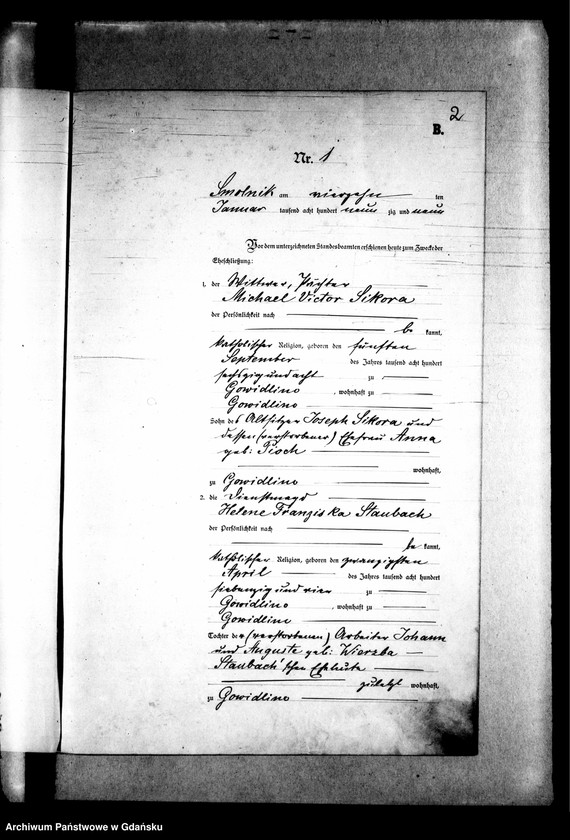 2
B.
Nr. 1
Smolnik am vierzehn ten
Januar tausend acht hundert neun zig und neun
Vor dem unterzeichneten Standesbeamten erschienen heute zum Zwecke der
Eheschließung:
1. der Wittwer, Pächter
Michael Victor Sikora
der Persönlichkeit nach
be kannt,
katholischer Religion, geboren den fünften
September des Jahres tausend acht hundert
sechszig und acht zu
Gowidlino, wohnhaft zu
Gowidlino
Sohn des Altsitzer Joseph Sikora und
dessen (verstorbener) Ehefrau Anna
geb: Pioch
wohnhaft,
zu Gowidlino
2. die Dienstmagd
Helene Franziska Staubach
der Persönlichkeit nach
be kannt,
katholischer Religion, geboren den zwanzigsten
April des Jahres tausend acht hundert
siebenzig und vier zu
Gowidlino, wohnhaft zu
Gowidlino
Tochter der (verstorbenen) Arbeiter Johann
und Auguste geb: Wierzba
Staubach'schen Eheleute
zuletzt wohnhaft,
zu Gowidlino
Archiwum Państwowe w Gdańsku